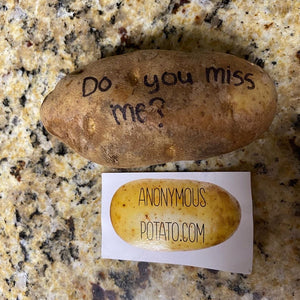 Do you miss
me?
ANONYMOUS
POTATO.COM